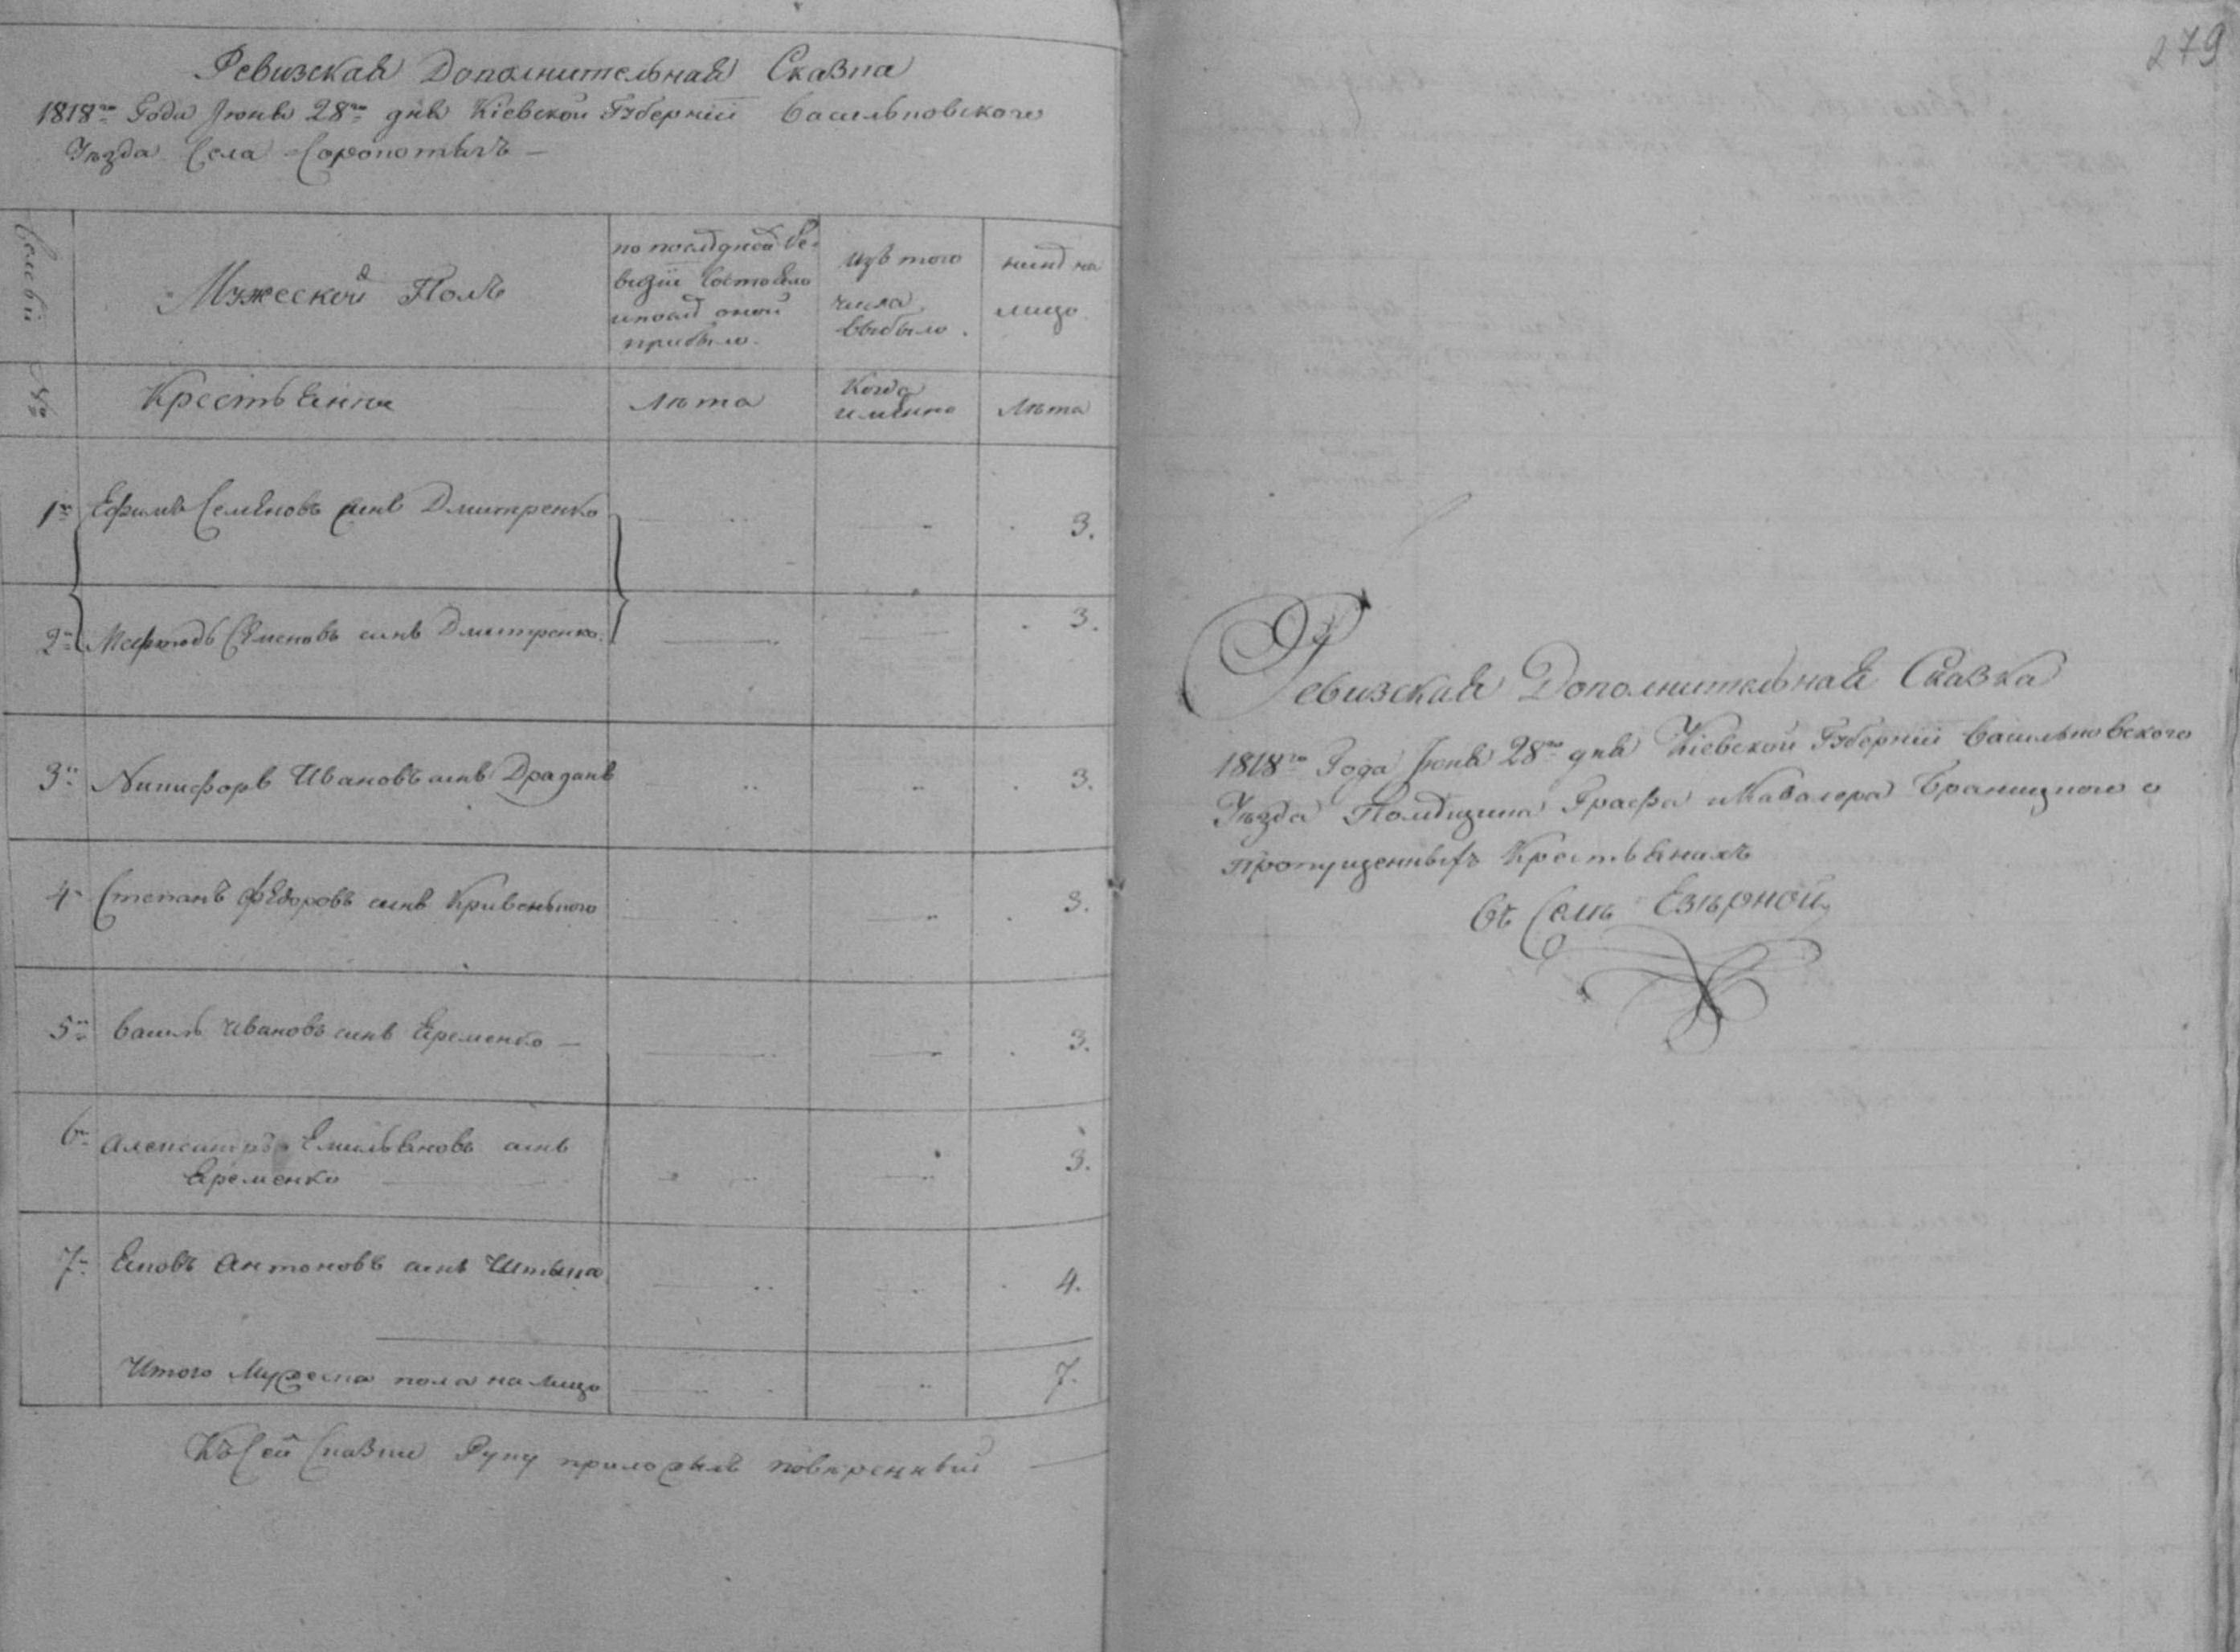 Ревизская Дополнительная Сказка
1818го Года Июня 28го дня Кіевской Губерніи Васильковского
Уѣзда Села Сорокотягъ —
Мужеской Полъ
по последней Ре-
визіи состояло
и после оной
прибыло.
изъ того
числа
выбыло.
ныне на
лицо.
№
Крестьянии
Лѣта
Когда
имянно
Лѣта
1й Ефимъ Семяновъ сынъ Дмитренко 3.
2й Мефтодъ Семеновъ сынъ Дмитренко. 3.
3й Никифоръ Ивановъ сынъ Драганъ 3.
4й Степанъ Федоровъ сынъ Кривенького 3.
5й Василь Ивановъ сынъ Яременко — 3.
6й Александръ Емильяновъ сынъ
Яременко 3.
7й Яковъ Антоновъ сынъ 4.
Итого Мужеска пола на лицо 7.
Къ Сей Сказки Руку приложилъ повѣренный —
279
Ревизская Дополнительная Сказка
1818го Года Июня 28го дня Кіевской Губерніи Васильковского
Уѣзда Помещика Графа и Кавалера Браницкого о
Пропущенныхъ Крестьянахъ
Въ Селѣ Езѣрной